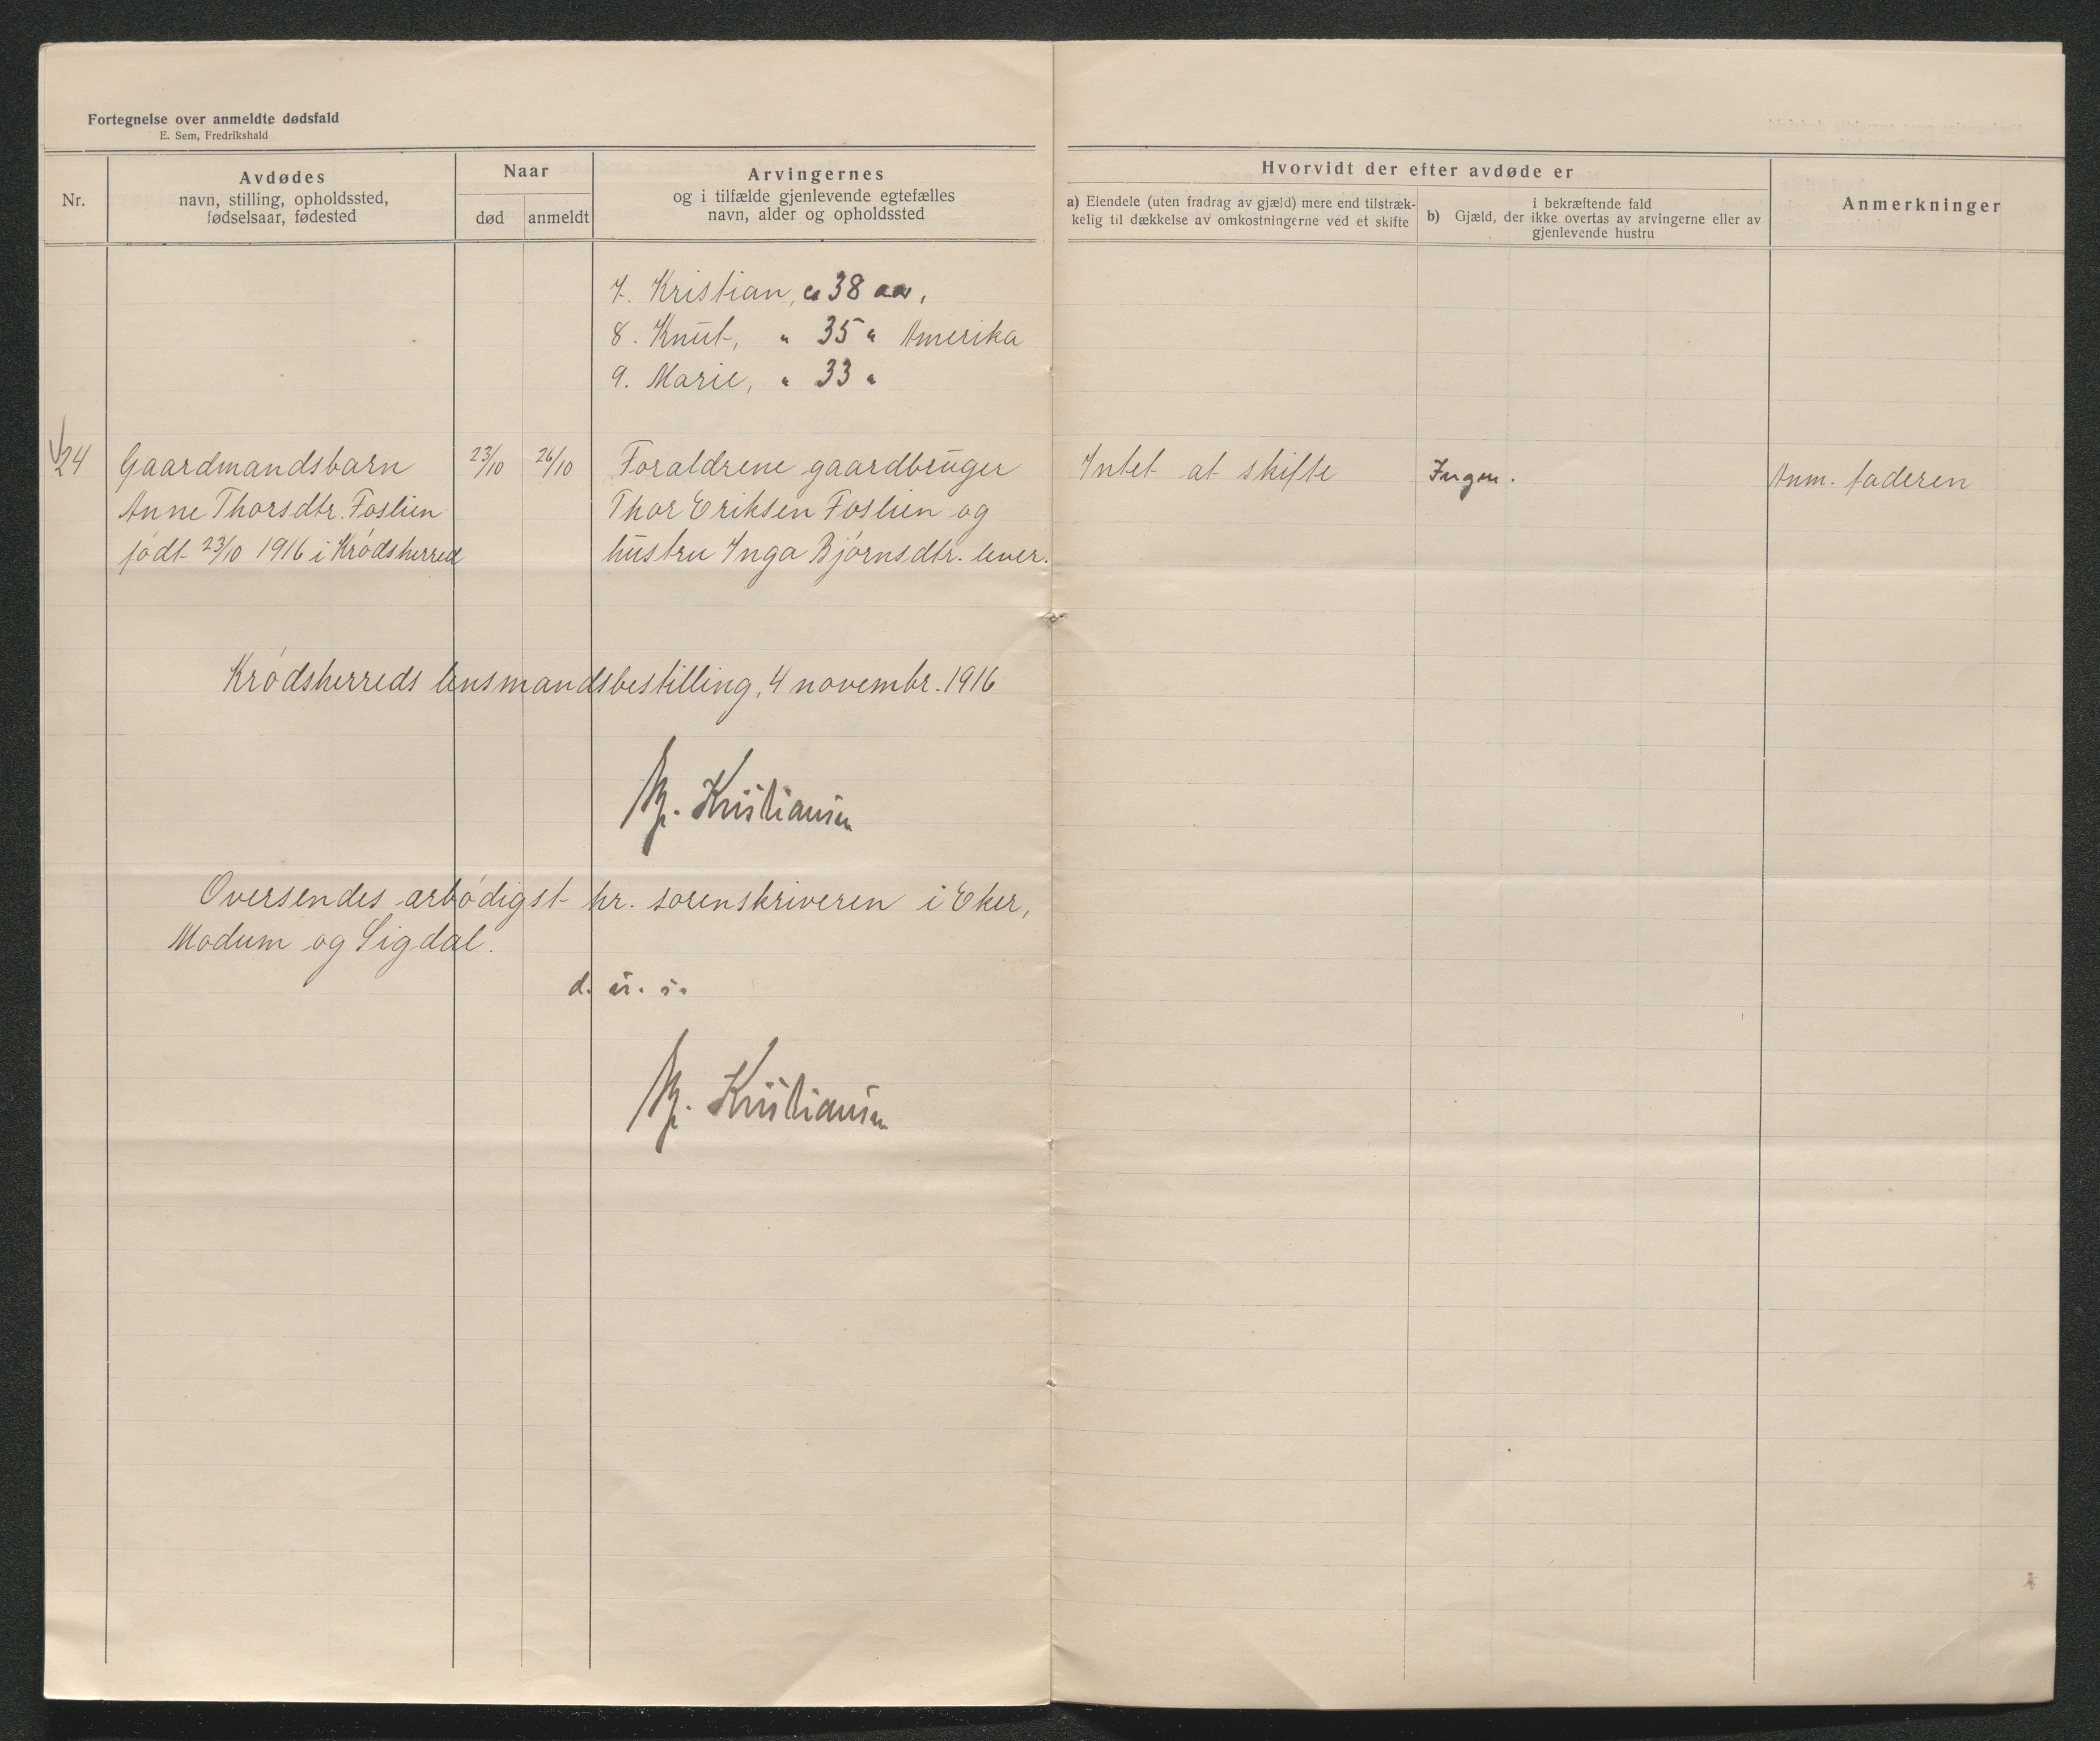 Fortegnelse over anmeldte dødsfald
E. Sem, Fredrikshald
Nr.
Avdødes
navn, stilling, opholdssted,
fødselsaar, fødested
Naar
død
anmeldt
Arvingernes
og i tilfælde gjenlevende egtefælles
navn, alder og opholdssted
Hvorvidt der efter avdøde er
a) Eiendele (uten fradrag av gjæld) mere end tilstræk-
kelig til dækkelse av omkostningerne ved et skifte
i bekræftende fald
b) Gjæld, der ikke overtas av arvingerne eller av
gjenlevende hustru
Anmerkninger
7. Kristian, ca 38 aar,
8. Knut, " 35 " Amerika
9. Marie, " 33 "
24
Gaardmandsbarn
Anne Thorsdtr. Foslien
født 23/10 1916 i Krødsherred
23/10
26/10
Forældrene gaardbruger
Thor Eriksen Foslien og
hustru Inga Bjørnsdtr. lever.
Intet at skifte
Ingen.
Anm. faderen
Krødsherreds lensmandsbestilling, 4 novembr. 1916
Kristiansen
Oversendes ærbødigst hr. sorenskriveren i Eker,
Modum og Sigdal.
d. u. s.
Kristiansen